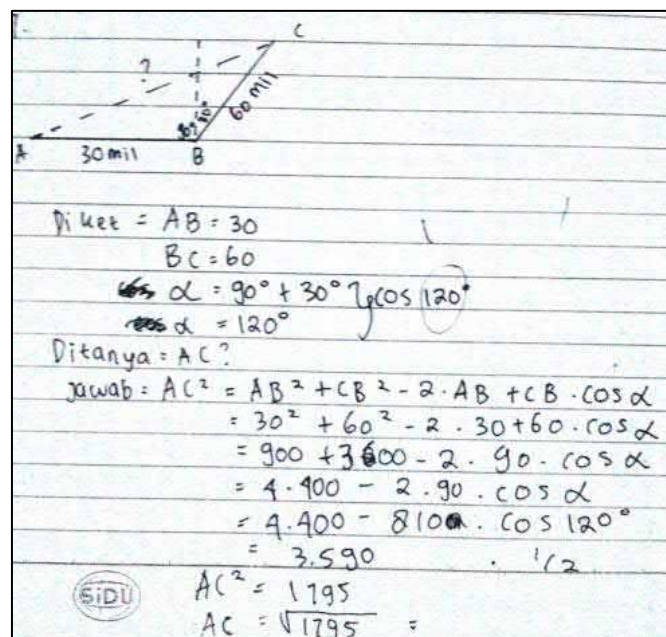 1.
C
?
60 mil
90° 30°
A 30 mil B
Diket = AB = 30
BC = 60
α = 90° + 30° } cos 120°
α = 120°
Ditanya = AC?
Jawab = AC² = AB² + CB² - 2 · AB + CB · cos α
= 30² + 60² - 2 · 30 + 60 · cos α
= 900 + 3600 - 2 · 90 · cos α
= 4.400 - 2.90 · cos α
= 4.400 - 810 · cos 120°
= 3.590 · 1/2
AC² = 1795
AC = √1795 =
SiDU